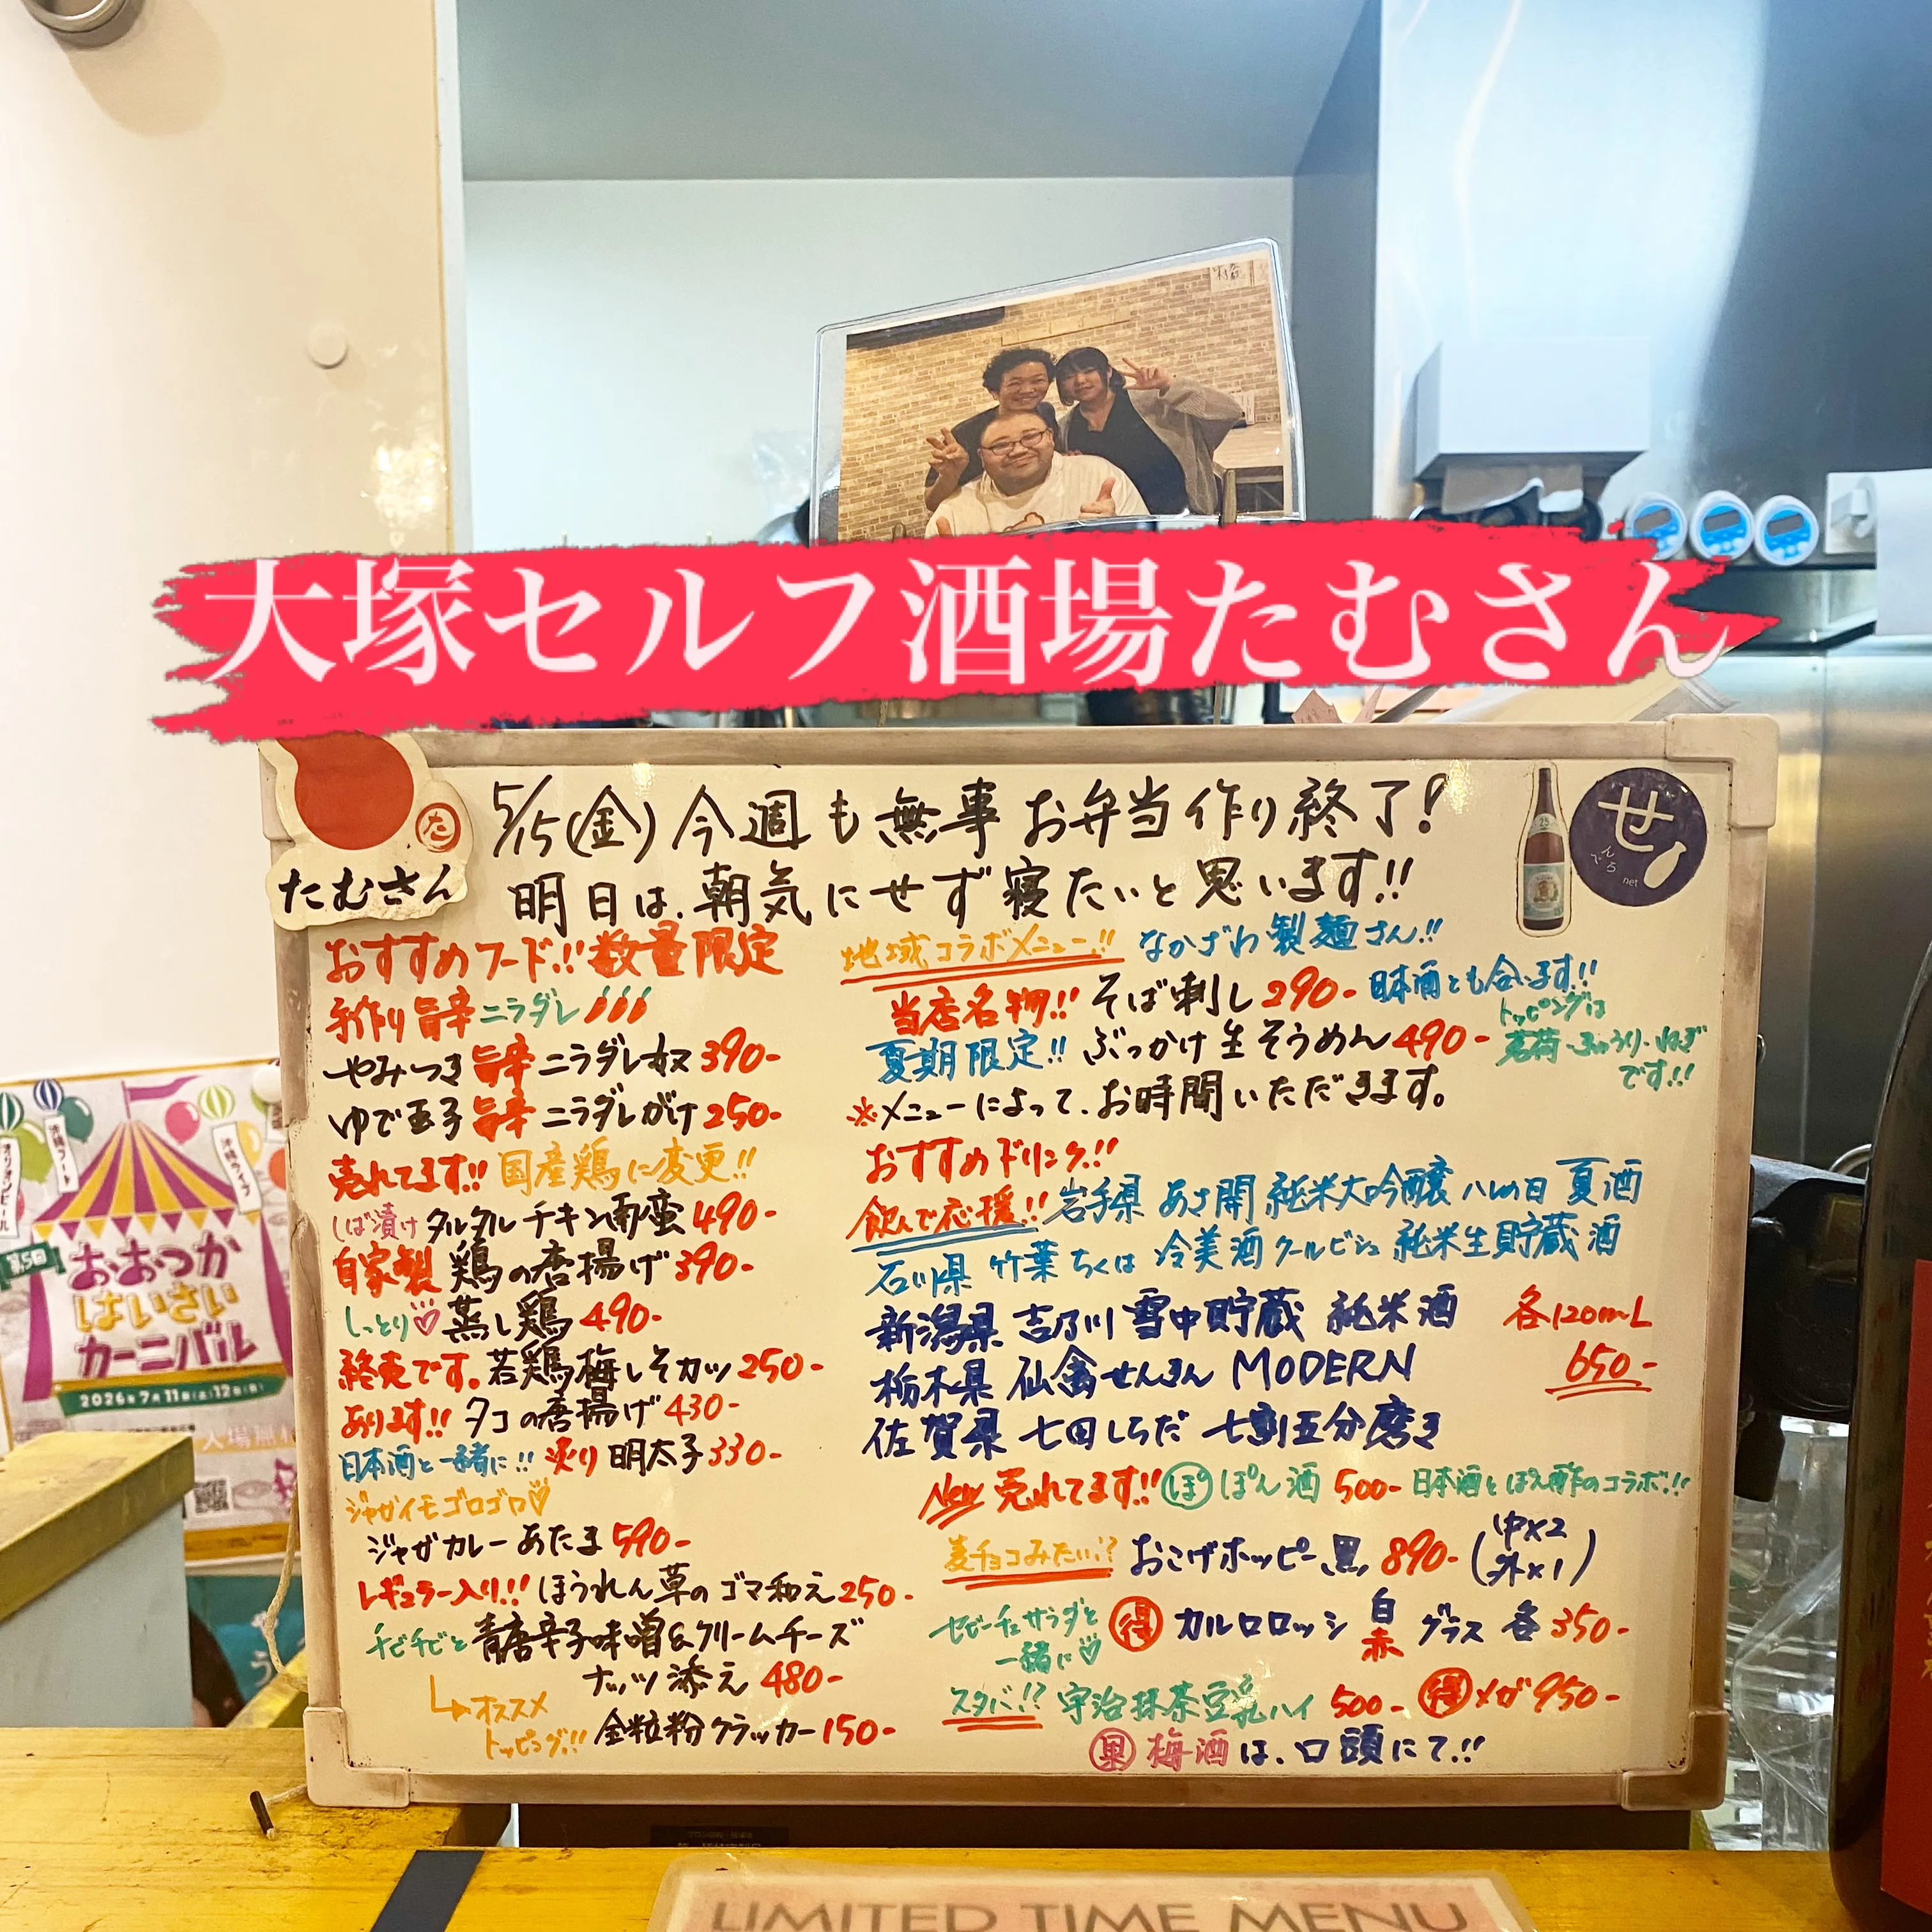 大塚セルフ酒場たむさん
た
たむさん
5/15(金)今週も無事お弁当作り終了!
明日は、朝気にせず寝たいと思います!!
せ
んべろ
net
おすすめフード!!数量限定
手作り旨辛ニラダレ
やみつき旨辛ニラダレ奴390-
ゆで玉子旨辛ニラダレがけ250-
売れてます!!国産鶏に変更!!
しば漬けタルタルチキン南蛮490-
自家製鶏の唐揚げ390-
しっとり♡蒸し鶏490-
終売です。若鶏梅しそカツ250-
あります!!タコの唐揚げ430-
日本酒と一緒に!!炙り明太子330-
ジャガイモゴロゴロ♡
ジャガカレーあたま590-
レギュラー入り!!ほうれん草のゴマ和え250-
チビチビと青唐辛子味噌&クリームチーズ
ナッツ添え480-
オススメ
トッピング!!全粒粉クラッカー150-
地域コラボメニュー!!なかざわ製麺さん!!
当店名物!!そば刺し290-日本酒とも合います!!
夏期限定!!ぶっかけ生そうめん490-
トッピングは
茗荷・きゅうり・ねぎ
です!!
※メニューによって、お時間いただきます。
おすすめドリンク!!
飲んで応援!!岩手県 あさ開 純米大吟醸 ハレの日 夏酒
石川県 竹葉 ちくは 冷美酒 クールビシュ 純米生貯蔵酒
新潟県 吉乃川 雪中貯蔵 純米酒
栃木県 仙禽せんきん MODERN
佐賀県 七田しちだ 七割五分磨き
各120mL
650-
New 売れてます!!ぽ ぽん酒 500-日本酒とぽん酢のコラボ!!
麦チョコみたい!?おこげホッピー黒 890-(中×2
外×1)
セビーチェサラダと
一緒に♡
得 カルロロッシ 白 赤 グラス 各350-
スタバ!?宇治抹茶豆乳ハイ 500-得メガ950-
果 梅酒は、口頭にて!!
オリオンビール
沖縄フード
沖縄ライブ
第5回
おおつか
はいさい
カーニバル
2026年7月11日(土)12日(日)
入場無料
LIMITED TIME MENU